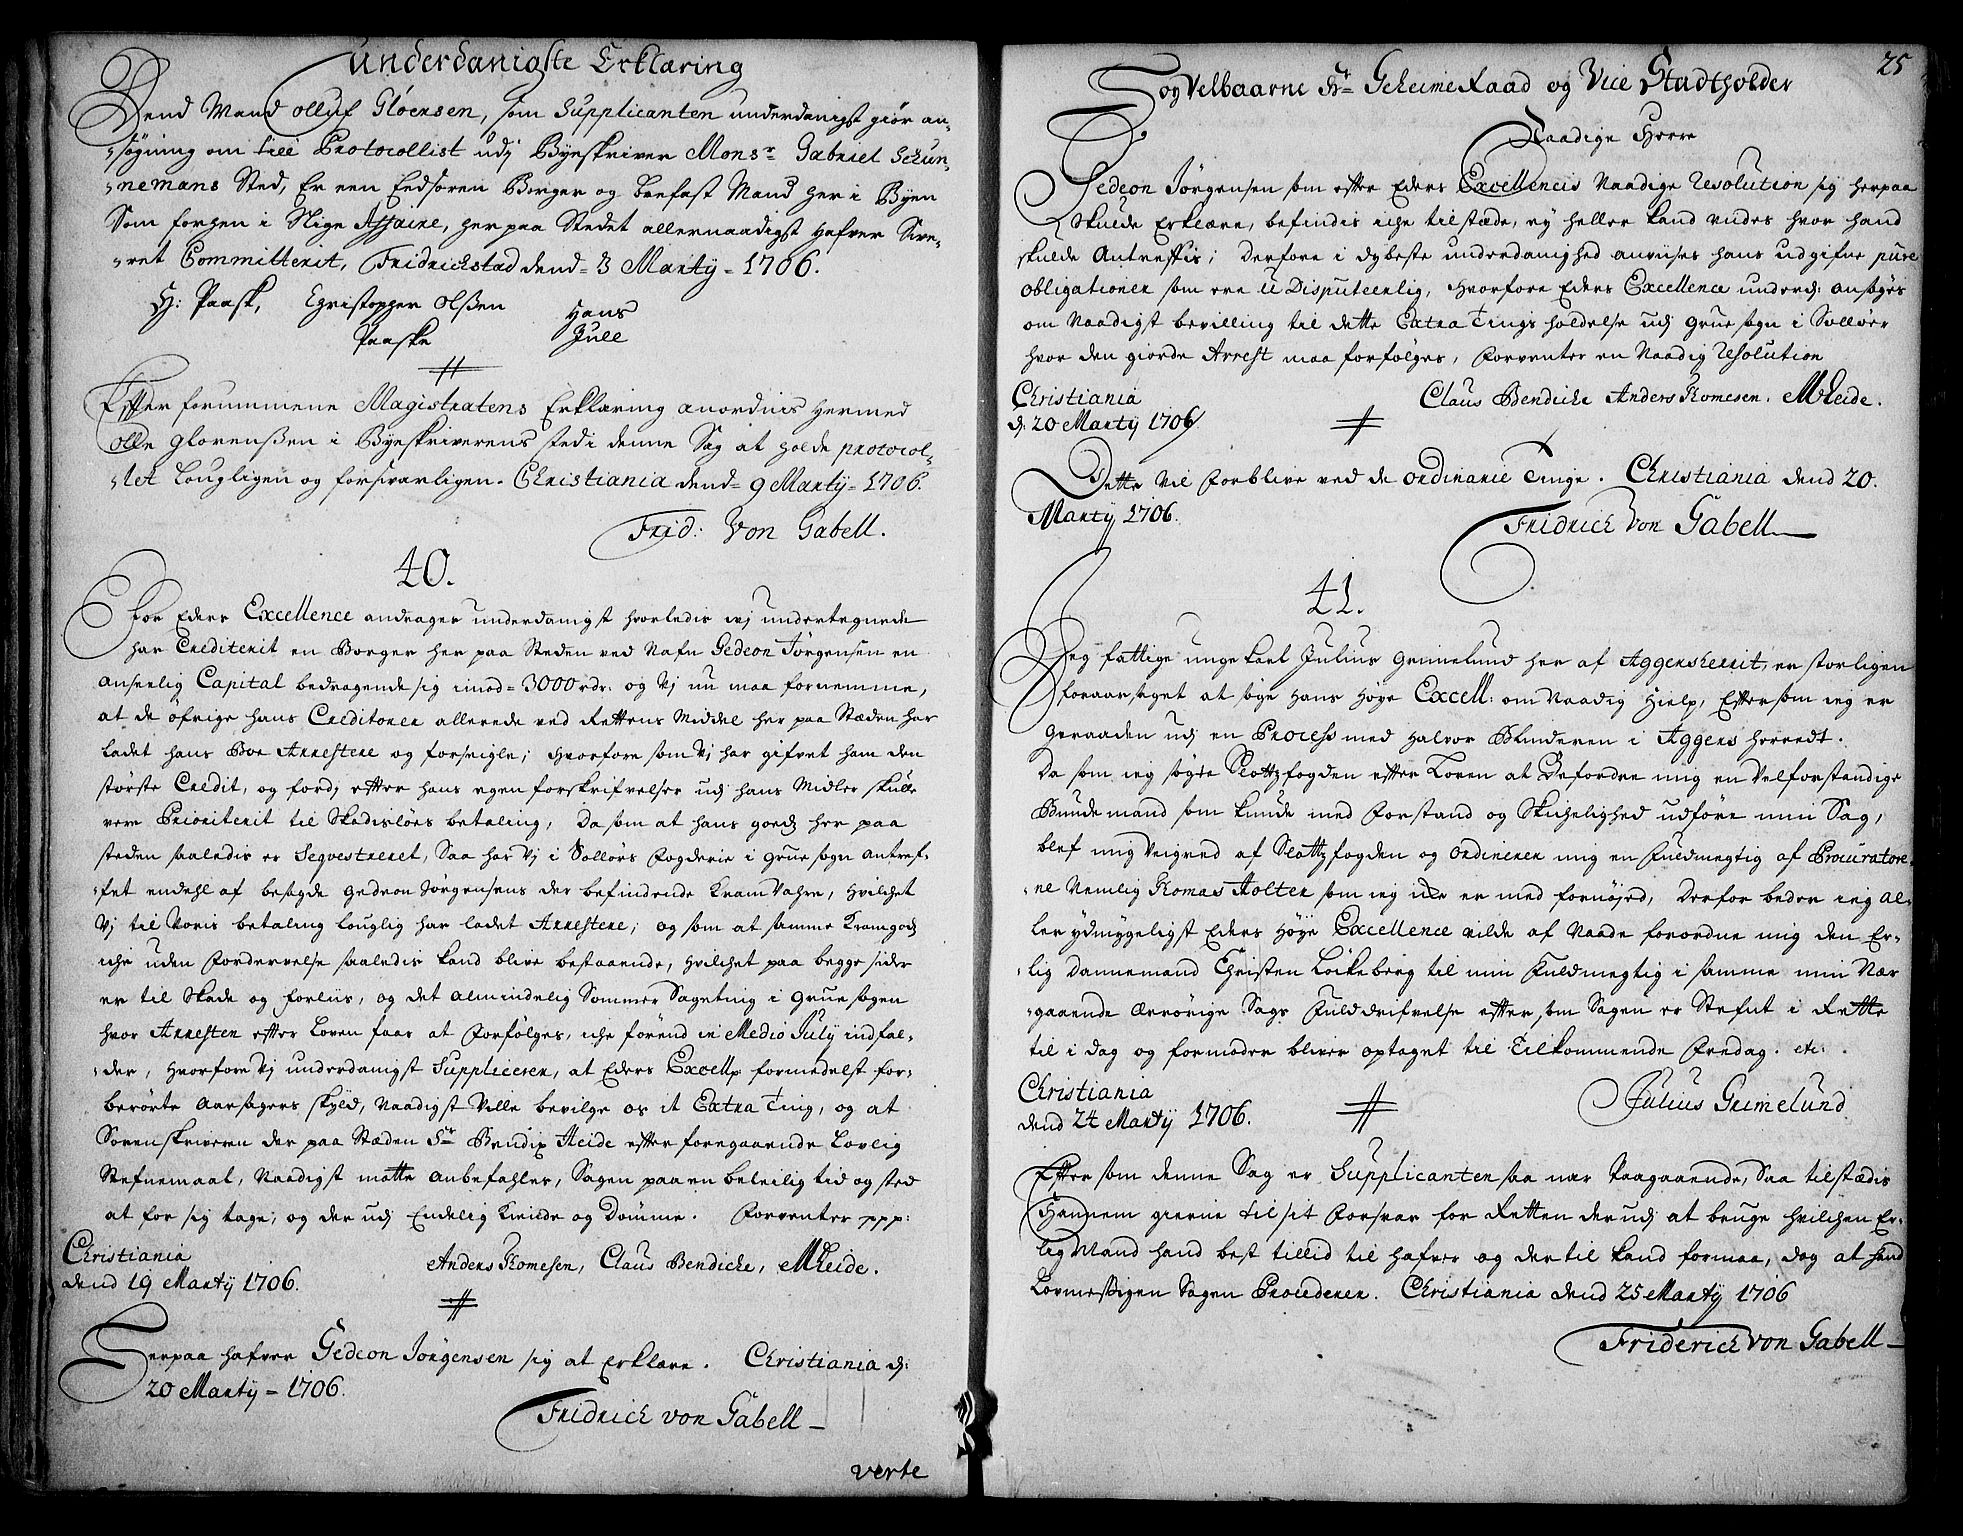 Underdanigste Erklæring
Dend Mand Olluf Gløersen, som Supplicanten underdanigst giør an-
-søgning om till Protocollist udj Byeskriver Monsr Gabriel Schun-
-nemans Sted, Er een Eedsoren Borger og boefast Mand her i Byen
Som forhen i Slige Affaire, her paa Stedet allernaadigst hafver være-
-ret Committerit, Fridrichstad dend 3 Marty 1706.
H: Paask, Christopher Olßen Hans
Paaske Juell
Efter forommene Magistratens Erklæring anordnis hermed
Olle Glorenßen i Byeskriverens sted i denne Sag at holde protocol-
-let Lougligen og forsvarligen. Christiania dend 9 Marty 1706.
Frid: Von Gabell.
40.
For Eders Excellence andrager underdanigst hvorledis wj undertegnede
har Crediterit en Borger her paa Steden ved Nafn Gedeon Jørgensen en
anseelig Capital bedragende sig imod 3000 rdr. og Vj nu maa fornemme,
at de øfrige hans Creditorer allerede ved Rettens Middel her paa Stæden har
Ladet hans Boe Arrestere og forseigle; hvorfore som Vj har gifvet ham den
største Credit, og fordj efter hans egen forskrifvelser udj hans Midler skulle
vere Prioriterit til Skadisløes betaling, Da som at hans goedz her paa
steden saaledis er Seqvestreret, Saa har Vj i Solløers Fogderie i Grue sogn antref-
-fet endehl af besagde Gedeon Jørgensens der befindende Kram Vahre, hvilchet
Vj til Voris betaling louglig har ladet Arrestere; og som at samme Kramgodz
iche uden Fordervelse saaledis kand blive bestaaende, hvilchet paa begge sider
er til Skade og forliis, og det almindelig Sommer Sageting i Grue sogen
hvor Arresten efter Loven faar at Forfølges, iche førend in Medio July indfal-
-der, hvorfore Vj underdanigst Supplicerer, at Eders Excellz formedelst for-
berørte aarsagers skyld, Naadigst Ville bevilge os it Extra Ting, og at
Sorenskriveren der paa Stæden Sr Bendix Heide efter foregaaende Lovlig
Stefnemaal, Naadigst motte anbefahles, Sagen paa en beleilig tid og sted
at for sig tage; og der udj Endelig Kiende og Dømme. Forventer ppp:
Christiania Anders Thomesen, Claus Bendicke, MHeide.
dend 19 Marty 1706.
Herpaa hafver Gedeon Jørgensen sig at Erklære. Christiania d:
20 Marty 1706.
Fridrich von Gabell
verte
25
Høy Velbaarne Hr Geheime Raad og Vice Stadtholder
Naadige Herre
Gedeon Jørgensen som efter Eders Excellencis Naadige Resolution sig herpaa
skulde Erklære, befindis iche tilstæde, ey heller kand vides hvor hand
skulde Antreffis; Derfore i dybeste underdanighed anviises hans udgifne pure
obligationer som ere u Disputeerlig, hvorfore Eders Excellence underd: ansøges
om Naadigst bevilling til dette Extra Tings holdelse udj Grue sogn i Solløer
hvor den giorde Arrest maa forfølges, Forventer en Naadig Resolution
Christiania Claus Bendicke Anders Thomesen. MHeide.
d: 20 Marty 1706
Dette Vil Forblive ved de ordinarie Tinge. Christiania dend 20.
Marty 1706.
Fridrich von Gabell
41.
Jeg fattige unge karl Julius Grimelund her af Aggersherrit, er storligen
foraarsaget at søge Hans Høye Excell: om Naadig Hielp, Eftersom ieg er
geraaden udj en Process med Halvor Blinderen i Aggers herredt.
Da som ieg søgte Slottzfogden efter Loven at Befordre mig en Velforstandige
Bunde mand som kunde med Forstand og Skichelighed udføre min Sag,
blef mig Veigred af Slottzfogden og ordinerer mig en Fuldmegtig af Procuratore-
-ne Nemlig Thomas Holter som ieg icke er med fornøyed, Derfor beder ieg al-
ler ydmygeligst Eders Høye Excellence vilde af Naade forordne mig den Er-
-lig Dannemand Christen Løikeberg til min Fuldmegtig i samme min Nær
-gaaende Ærrørige Sags Fulddrifvelse efter som Sagen er Stefnt i Rette
til i dag og formoder bliver optaget til Tilkommende Fredag. etc.
Christiania Julius Grimelund
dend 24 Marty 1706.
Efter som denne Sag er Supplicanten saa nær Paagaaende, Saa tilstædis
Hannem gierne til sit Forsvar for Retten der udj at bruge hvilchen Er-
lig Mand hand best tillid til hafver og der til kand formaa, dog at hand
Lovmessigen Sagen Procederer. Christiania dend 25 Marty 1706
Friderich von Gabell